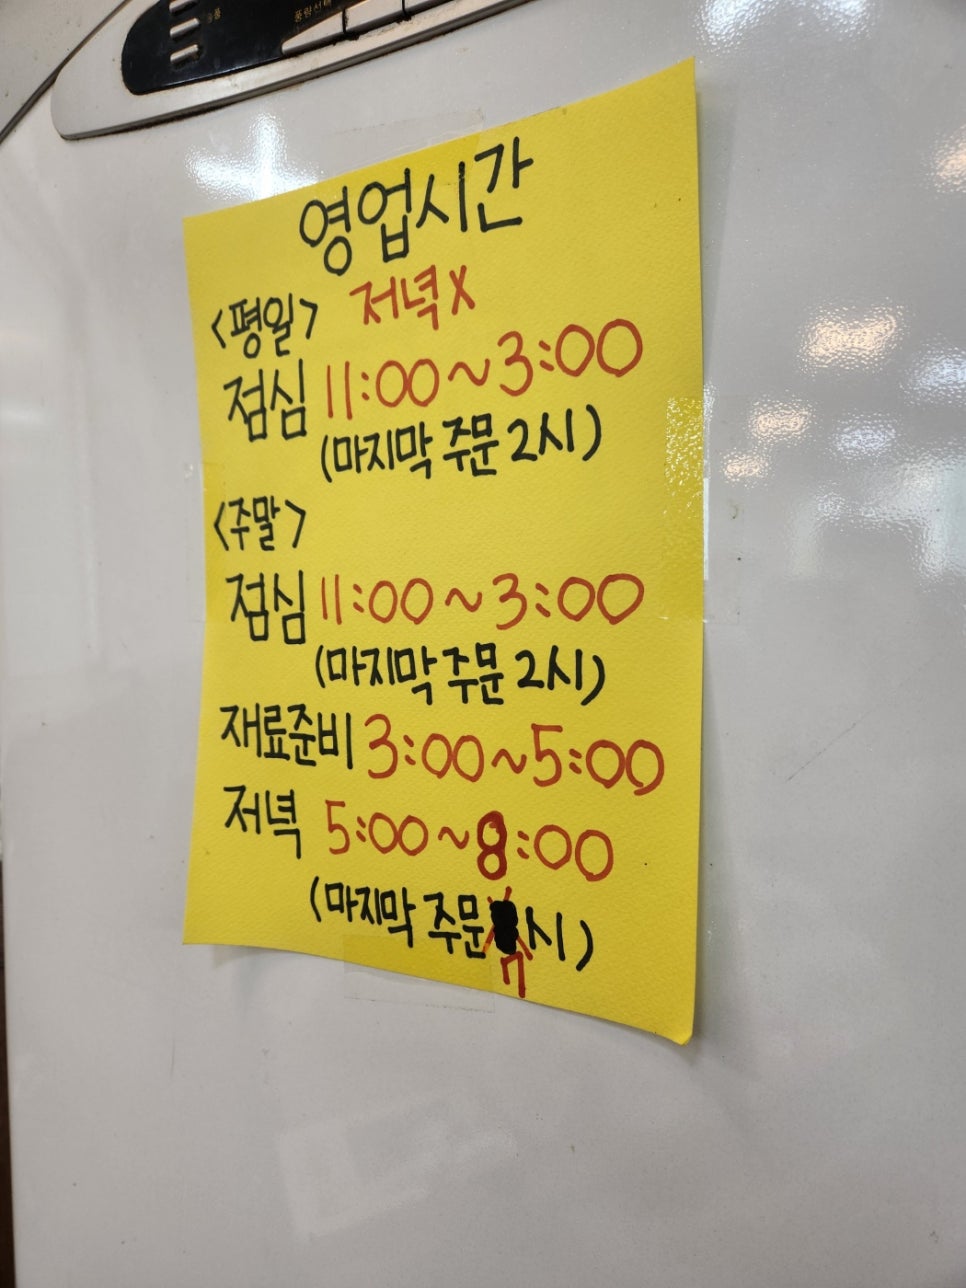 풍량선택
영업시간
<평일> 저녁X
점심 11:00~3:00
(마지막 주문 2시)
<주말>
점심 11:00~3:00
(마지막 주문 2시)
재료준비 3:00~5:00
저녁 5:00~8:00
(마지막 주문 시)
7